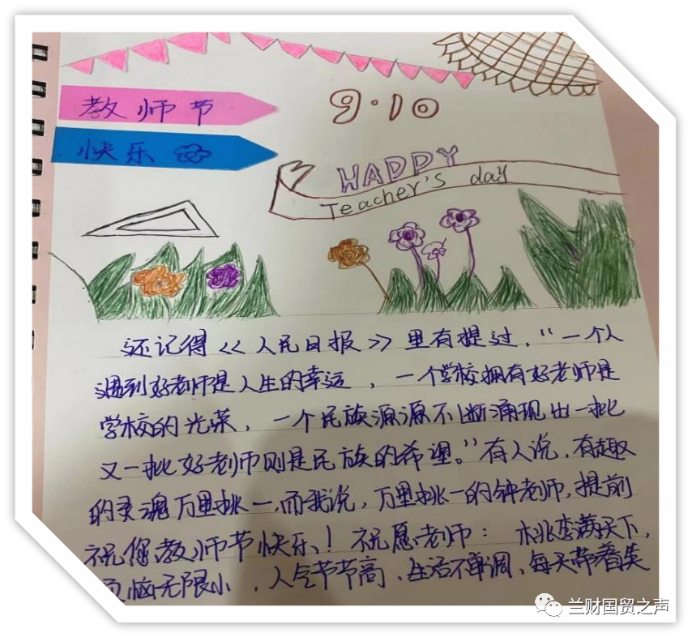 教师节
快乐
9·10
HAPPY
Teacher's day
还记得《人民日报》里有提过，"一个人
遇到好老师是人生的幸运，一个学校拥有好老师是
学校的光荣，一个民族源源不断涌现出一批
又一批好老师则是民族的希望。"有人说，有趣
的灵魂万里挑一，而我说，万里挑一的钟老师，提前
祝您教师节快乐！祝愿老师：桃李满天下，
恼无限小，人气节节高，生活不单调，每天带着笑
兰财国贸之声